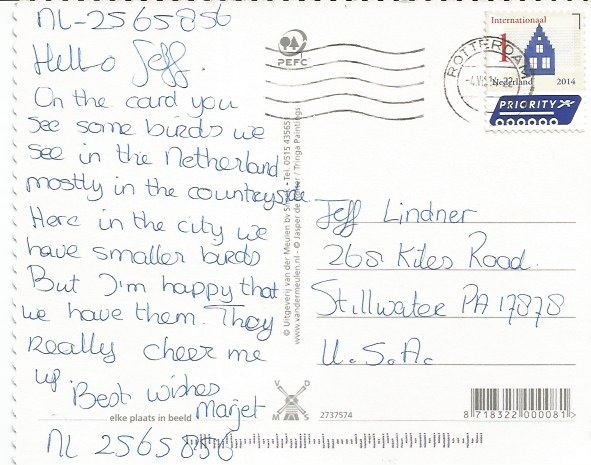 NL-2565856
Hello Jeff.
On the card you
see some birds we
see in the Netherland
mostly in the countryside
Here in the city we
have smaller birds
But I'm happy that
we have them. They
really cheer me
up Best wishes
Marjet
NL 2565856
PEFC
© Uitgeverij van der Meulen bv Sneek - Tel. 0515 435651
www.vandermeulen.nl - © Jasper de / Tringa Paintings
elke plaats in beeld
V O M S
2737574
ROTTERDAM
Internationaal
1
Nederland 2014
PRIORITY
Jeff Lindner
268 Kiles Road.
Stillwater PA 17878
U.S.A.
8 718322 000081 >